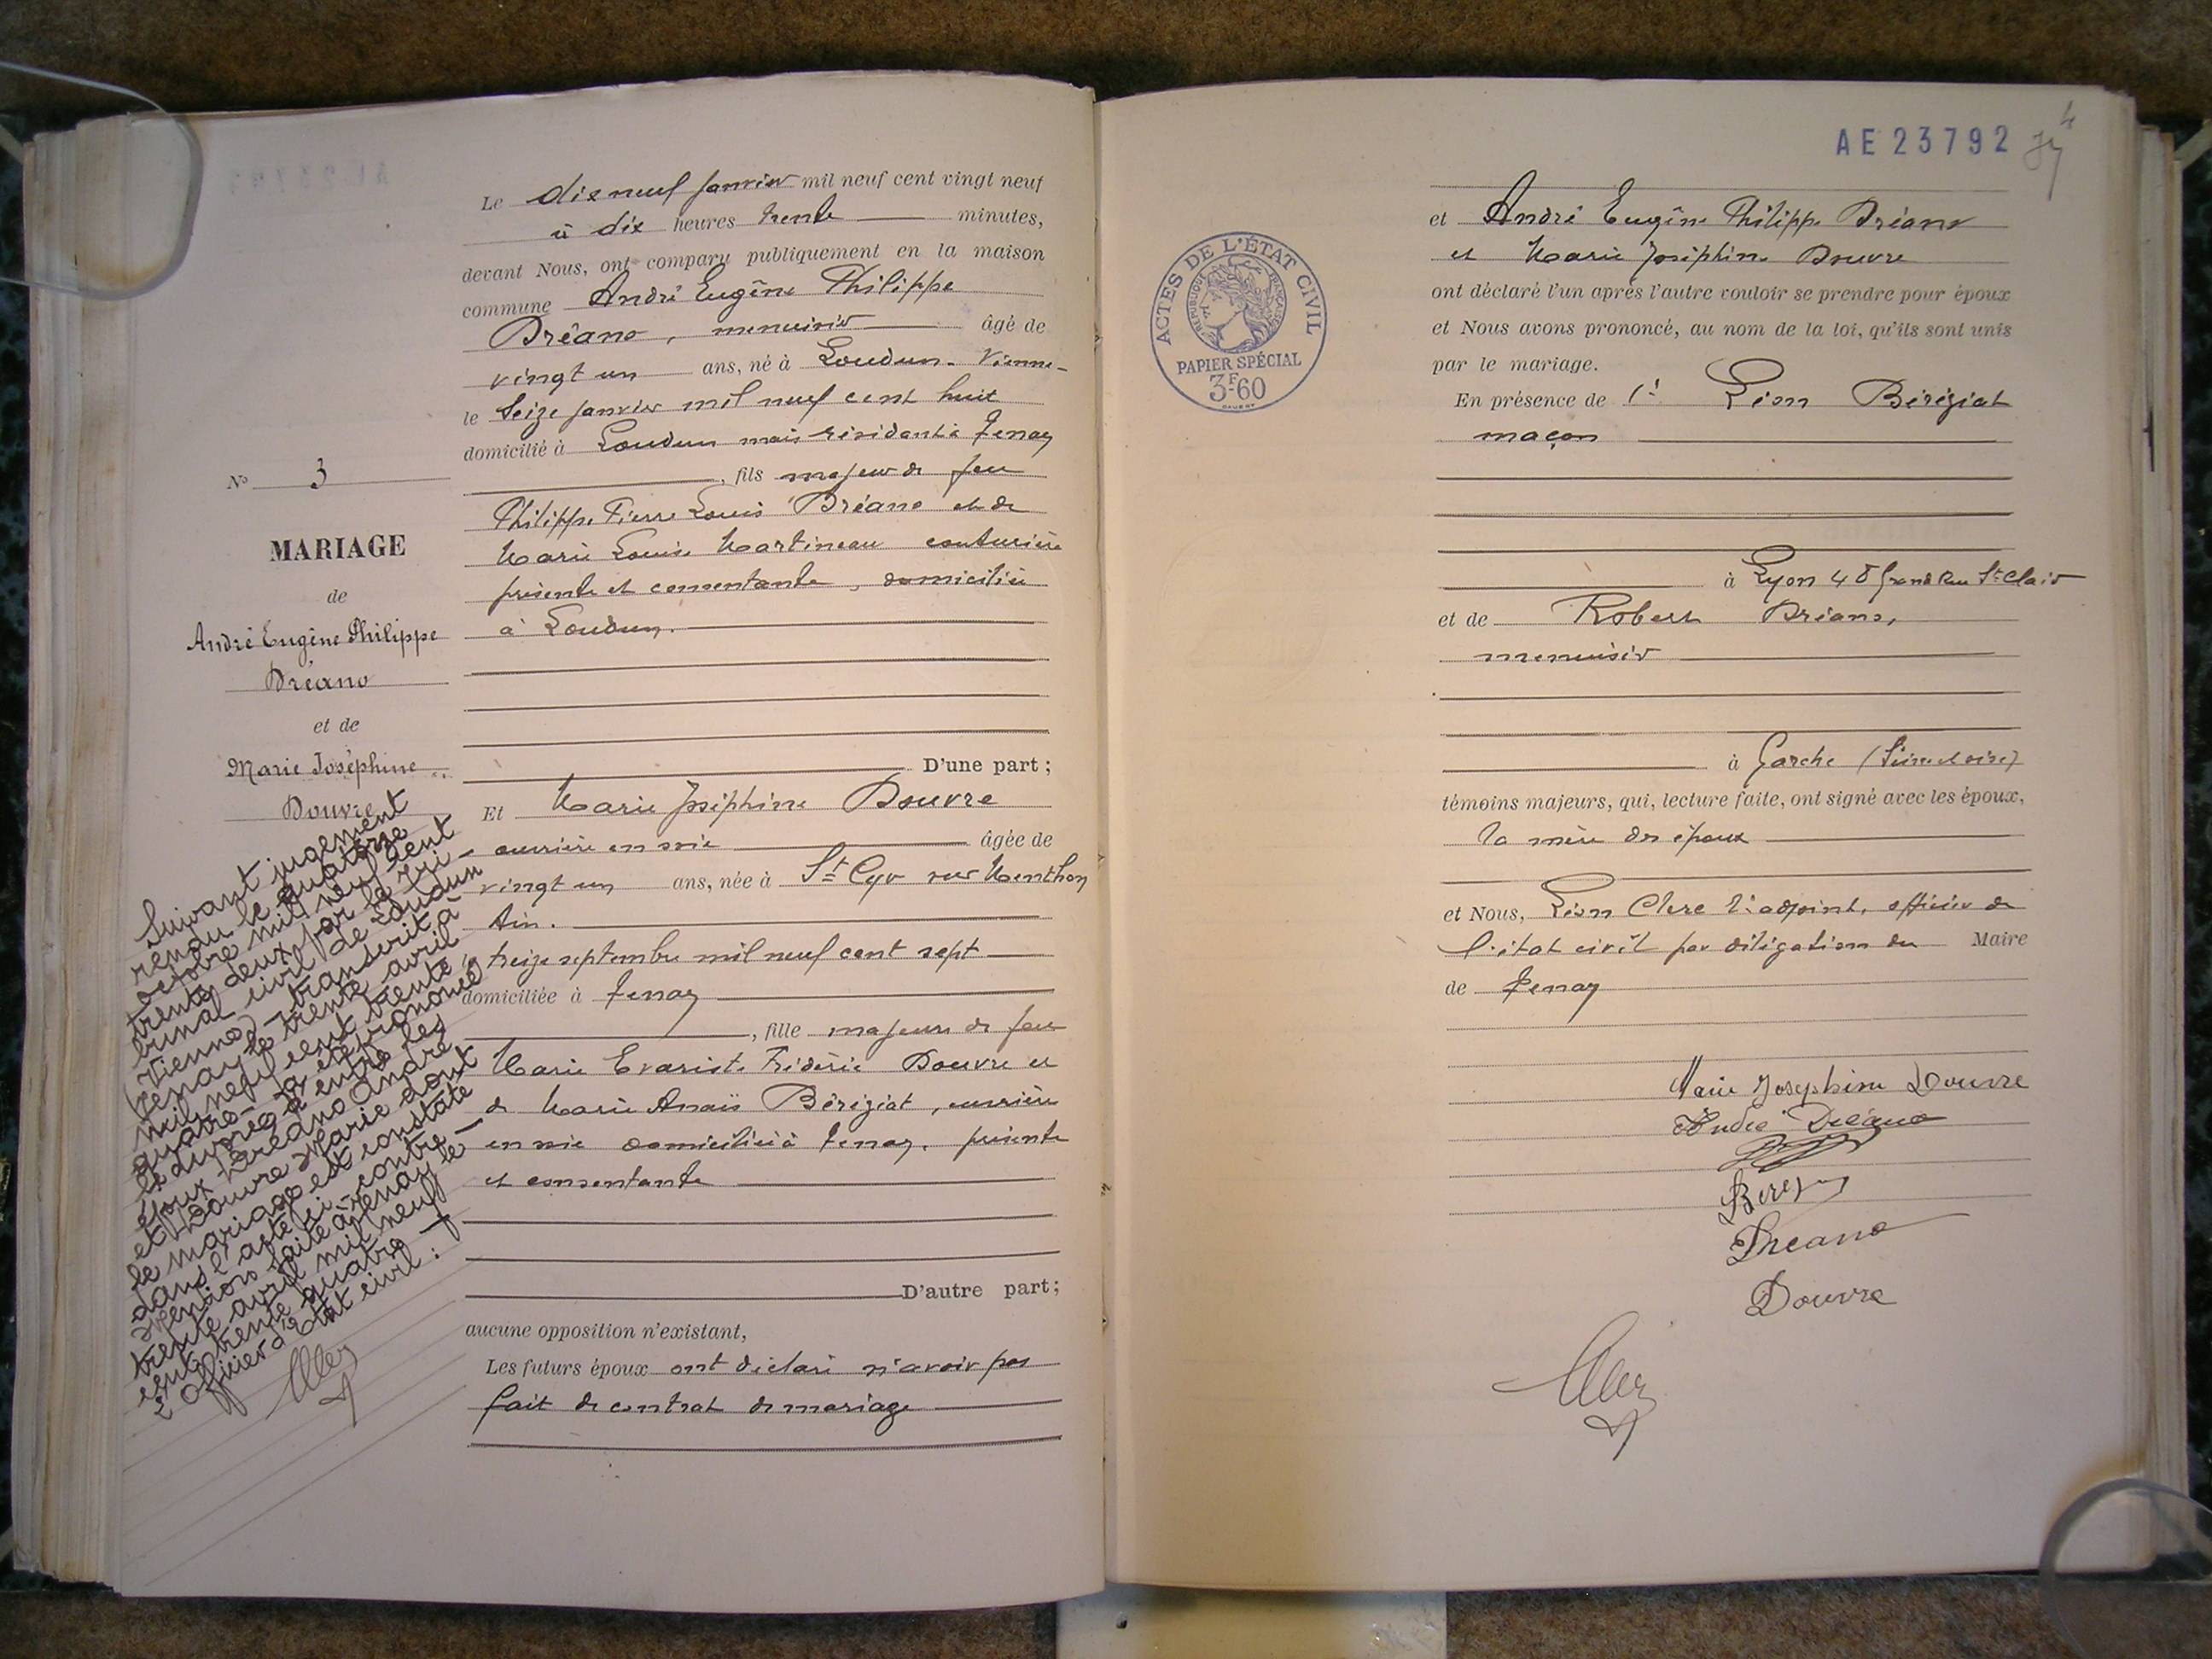 Le dix neuf Janvier mil neuf cent vingt neuf
à dix heures trente minutes,
devant Nous, ont comparu publiquement en la maison
commune André Eugène Philippe
Dréano, menuisier âgé de
vingt un ans, né à Loudun. Vienne-
le Seize Janvier mil neuf cent huit
domicilié à Loudun mais résidant à Tenay
, fils majeur de feu
Philippe Pierre Louis Dréano et de
Marie Louise Martineau couturière
présente et consentante, domiciliée
à Loudun.
D'une part;
Et Marie Joséphine Douvre
ouvrière en soie âgée de
vingt un ans, née à St Cyr sur Menthon
Ain.
le treize septembre mil neuf cent sept
domiciliée à Tenay
, fille majeure de feu
Marie Evariste Frédéric Douvre et
de Marie Anaïs Béréziat, ouvrière
en soie domiciliée à Tenay. présente
et consentante
D'autre part;
aucune opposition n'existant,
Les futurs époux ont déclaré n'avoir pas
fait de contrat de mariage
No 3
MARIAGE
de
André Eugène Philippe
Dréano
et de
Marie Joséphine
Douvre
Suivant jugement
rendu le quatorze
octobre mil neuf cent
trente deux par le tri-
bunal civil de Loudun
(Vienne) transcrit à
Tenay le trente avril
mil neuf cent trente
quatre - a été prononcé
le divorce entre les
époux Dréano André
et Douvre Marie dont
le mariage est constaté
dans l'acte ci-contre -
Mention faite à Tenay le
trente avril mil neuf
cent trente quatre -
L'officier d'Etat civil:
AE 23792
4
ACTES DE L'ÉTAT CIVIL
RÉPUBLIQUE FRANÇAISE
PAPIER SPÉCIAL
3F60
et André Eugène Philippe Dréano
et Marie Joséphine Douvre
ont déclaré l'un après l'autre vouloir se prendre pour époux
et Nous avons prononcé, au nom de la loi, qu'ils sont unis
par le mariage.
En présence de 1° Léon Béréziat
maçon
à Lyon 48 Grand Rue St Clair
et de Robert Dréano,
menuisier
à Garche (Seine et oise)
témoins majeurs, qui, lecture faite, ont signé avec les époux,
la mère des époux
et Nous, Léon Clerc 1er adjoint, officier de
l'état civil par délégation du Maire
de Tenay
Marie Josephine Douvre
André Dréano
Dreano
Douvre